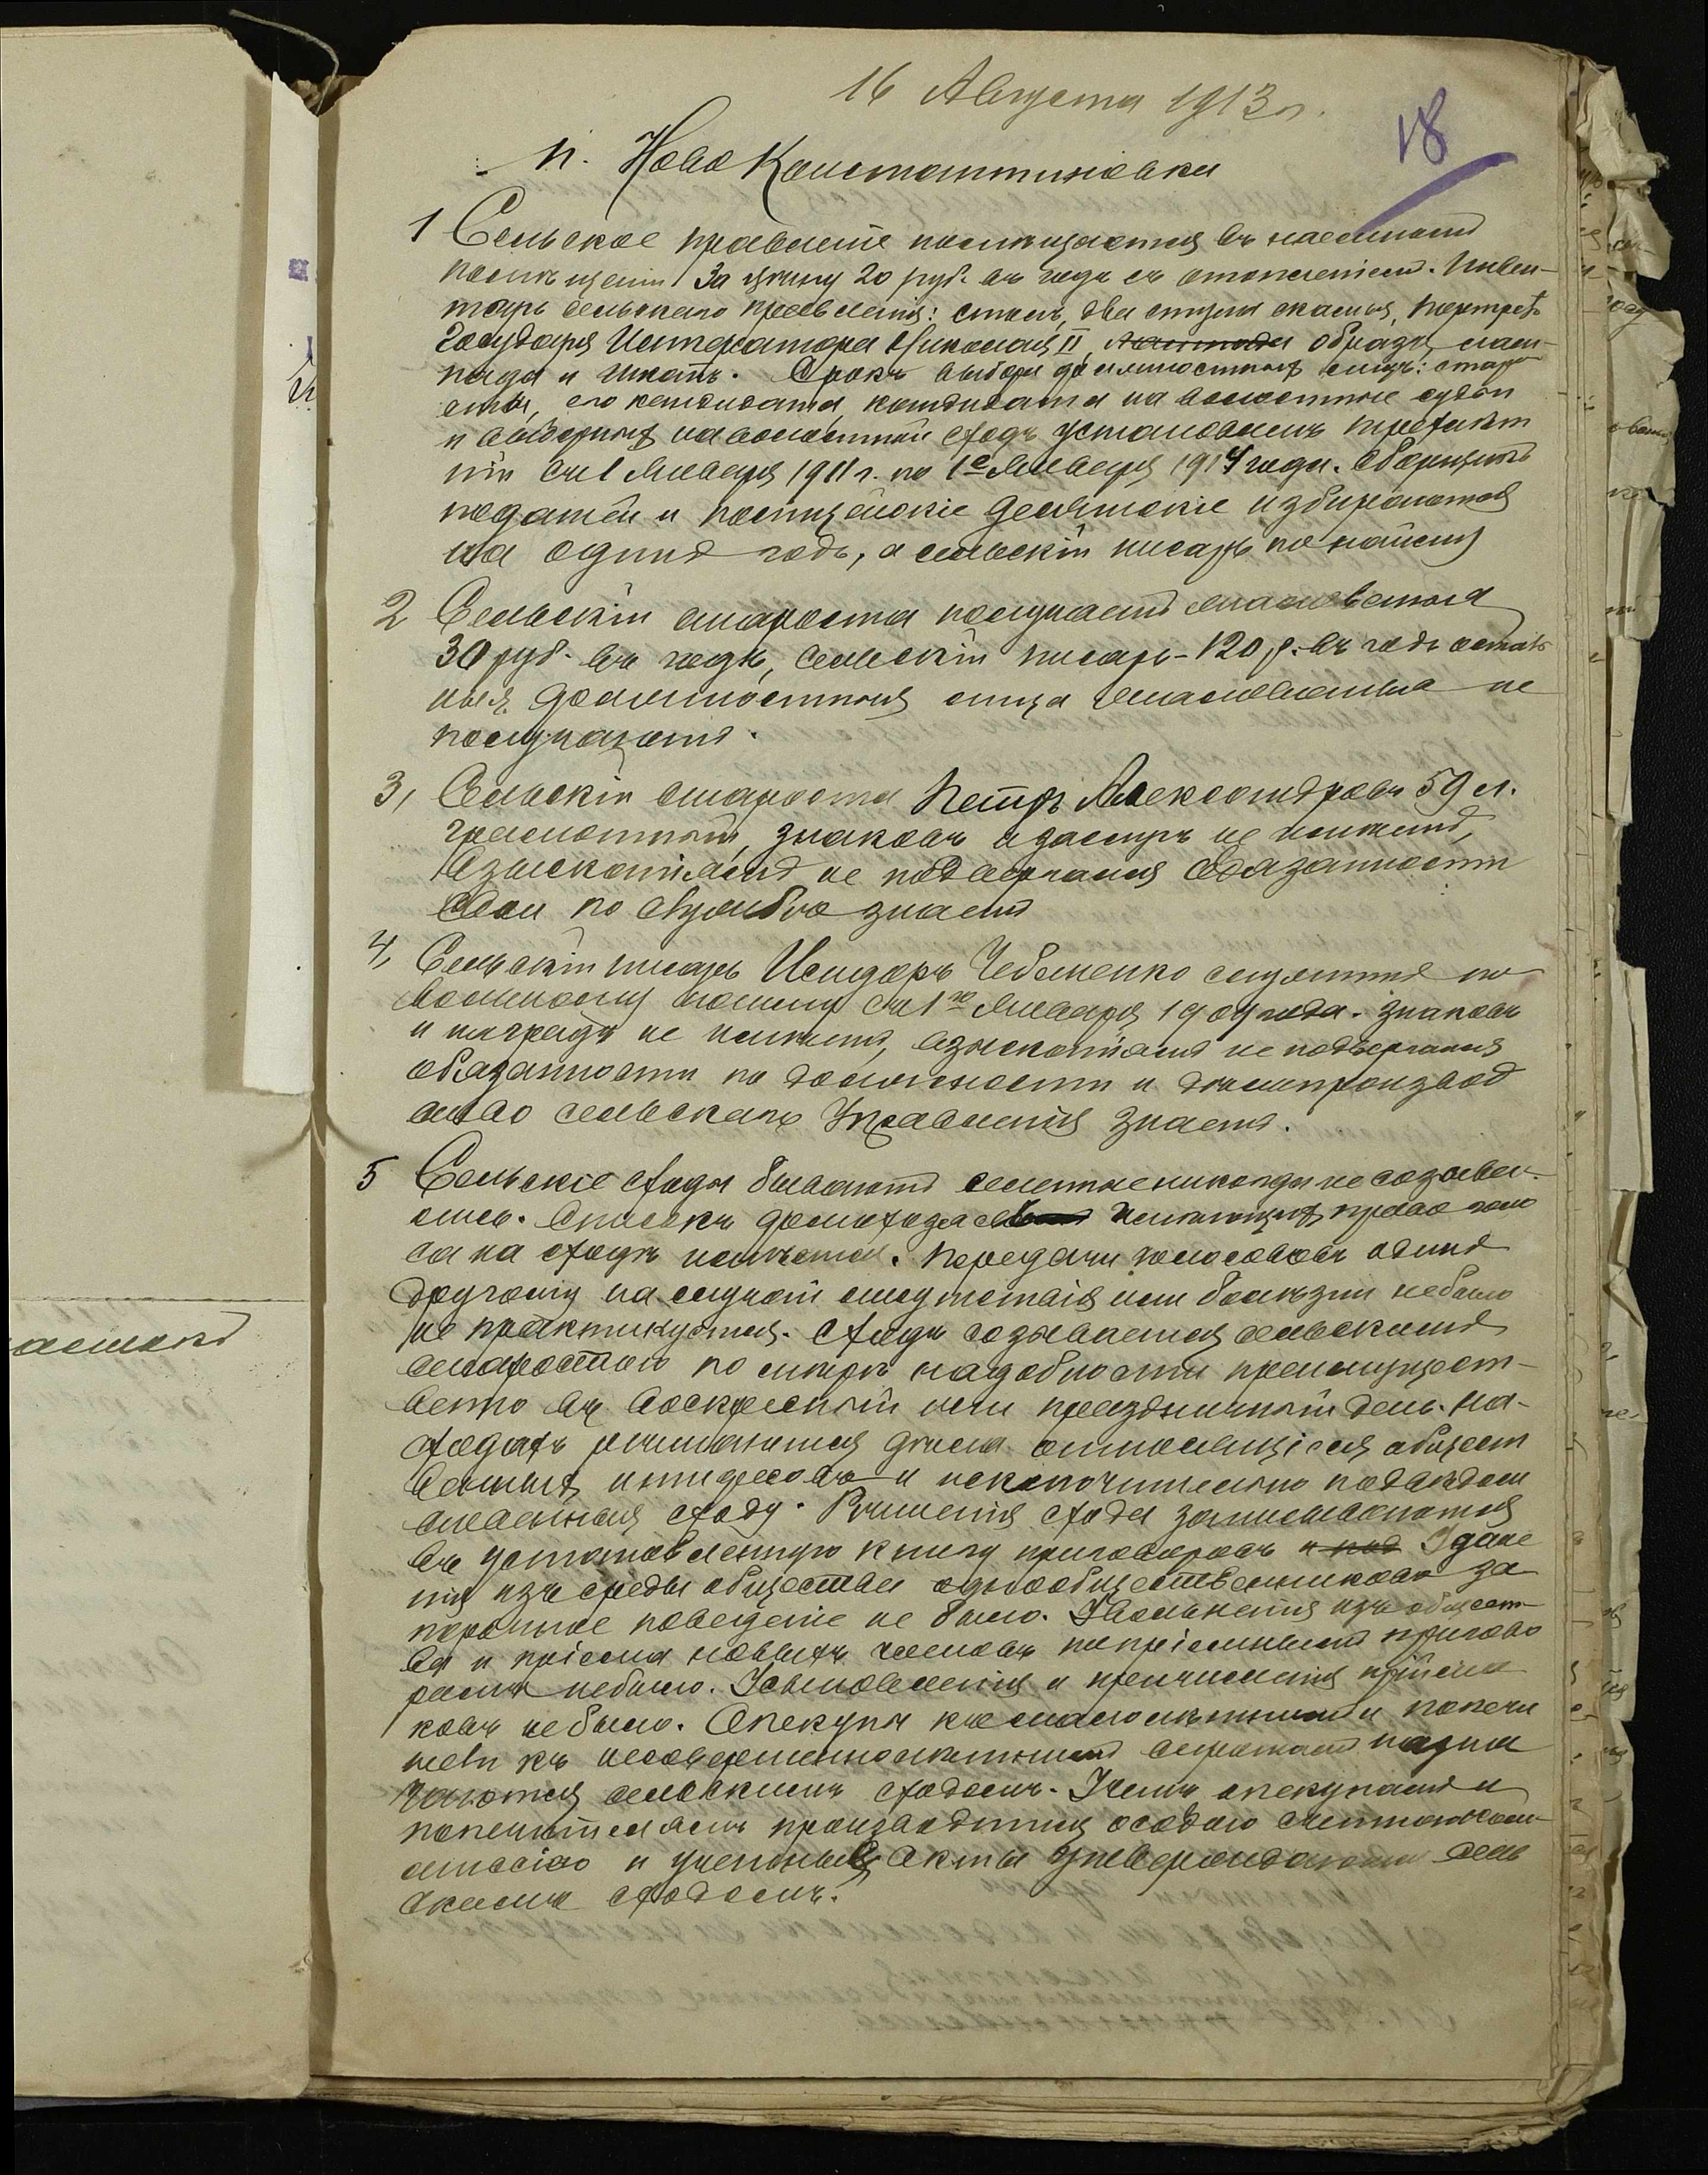 16 Августа 1913 г.
18
п. Ново Константиновки
1 Сельское правленіе помѣщается въ наемномъ
помѣщеніи за цѣну 20 руб. въ годъ съ отопленіемъ. Инвен-
тарь сельскаго правленія: столъ, два стула скамья, портретъ
Государя Императора Николая II, образъ, лам-
пада и шкапъ. Срокъ выбора должностныхъ лицъ: старо
сты, его кандидата, кандидата на волостные судьи
и выборныхъ на волостной сходъ установленъ трехлѣт
ній съ 1 Января 1911 г. по 1е Января 1914 года. Сборщикъ
податей и полицейскіе десятскіе избираются
на одинъ годъ, а сельскій писарь по найму
2 Сельскій староста получаетъ жалованья
30 руб. въ годъ, сельскій писарь - 120 р. въ годъ осталь
ныя должностныя лица жалованья не
получаютъ.
3, Сельскій староста Петръ Александровъ 59 л.
грамотный, знаковъ и заслугъ не имѣетъ,
взысканіямъ не подвергался обязанности
свои по службѣ знаетъ
4, Сельскій писарь Исидоръ Чебоненко служитъ по
вольному найму съ 1го Января 1909 года. знаковъ
и наградъ не имѣетъ, взысканіямъ не подвергался
обязанности по должности и дѣлопроизвод
ство сельскаго Управленія знаетъ.
5 Сельскіе сходы бываютъ селенные никогда не созыва-
лись. Списокъ домохозяевъ имѣющихъ право голо
са на сходѣ имѣется. Передачи голосовъ одинъ
другому на случай отсутствія или болѣзни небыло
не практикуется. Сходъ созывается сельскимъ
старостою по мѣрѣ надобности преимущест-
венно въ воскресный или праздничный день. На-
сходахъ рѣшаются дѣла относящіеся общест
венныхъ интересовъ и исключительно подвѣдом
ственныя сходу. Рѣшенія схода записываются
въ установленную книгу приговоровъ Удале
нія изъ среды общества однообщественниковъ за
порочное поведеніе не было. Увольненія изъ общест-
ва и пріема новыхъ членовъ по пріемнымъ пригово
рамъ небыло. Усыновленія и причисленія пріема
ковъ не было. Опекуны къ малолѣтнимъ и попечи
тели къ несовершеннолѣтнимъ сиротамъ назна
чаются сельскимъ сходомъ. Учетъ опекунамъ и
попечителямъ производится особою счетною ком-
миссіею и учетные Акты утверждаются сель
скимъ сходомъ.